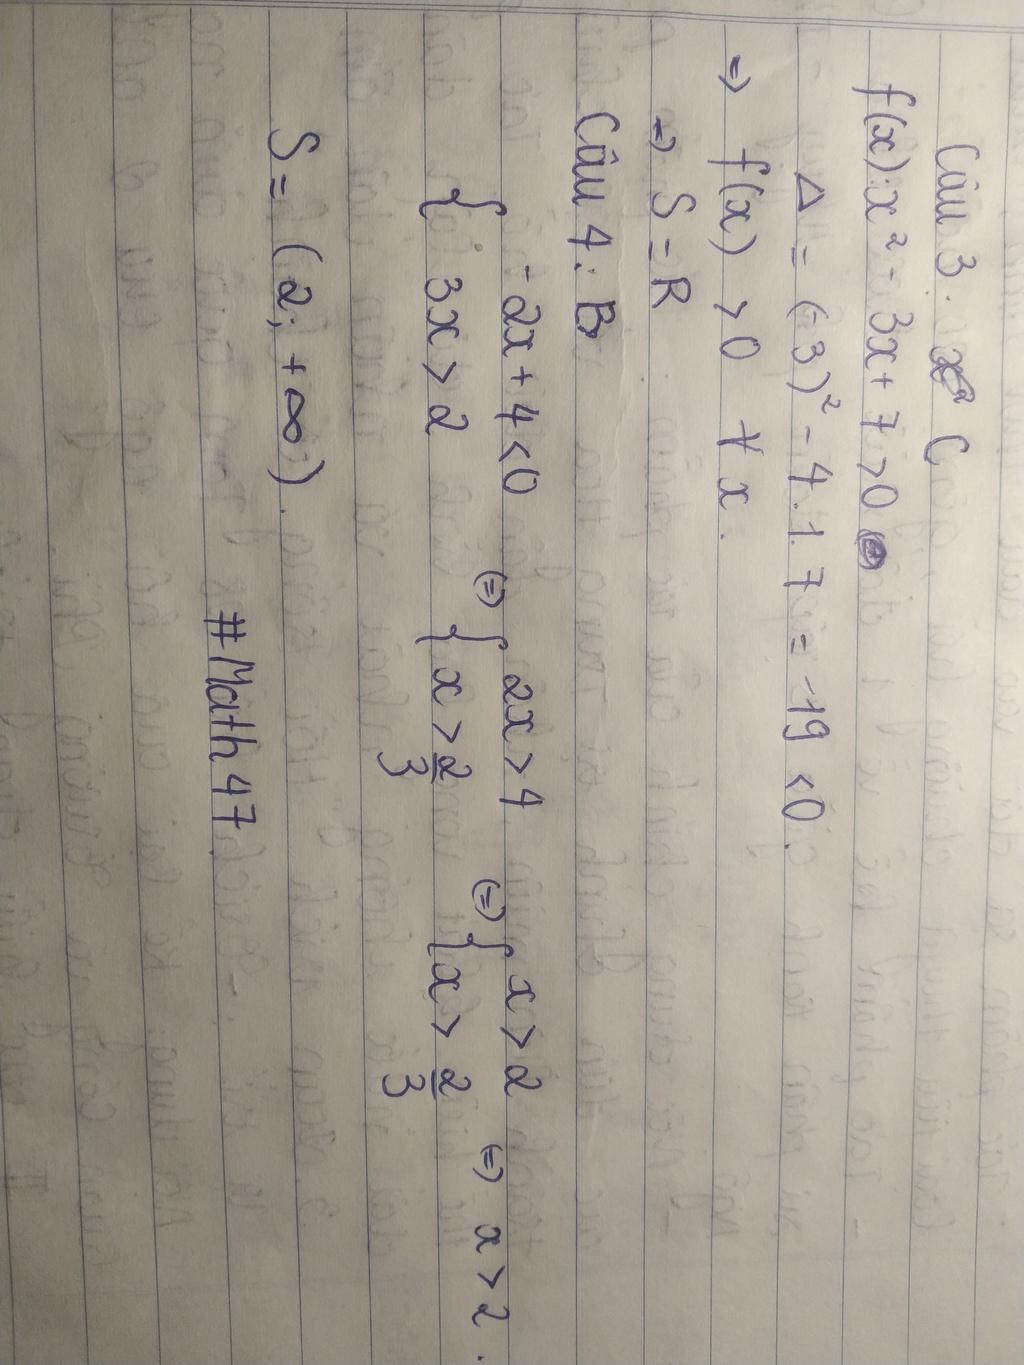 Câu 3. C
f(x): x² - 3x + 7 > 0
Δ = (-3)² - 4.1.7 = -19 < 0.
=> f(x) > 0 ∀x.
=> S = R
Câu 4: B
{ -2x + 4 < 0 (=) { 2x > 4 (=) { x > 2 (=) x > 2.
{ 3x > 2 { x > 2/3 { x > 2/3
S = (2; +∞).
#Math47